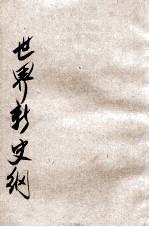 世界新史綱